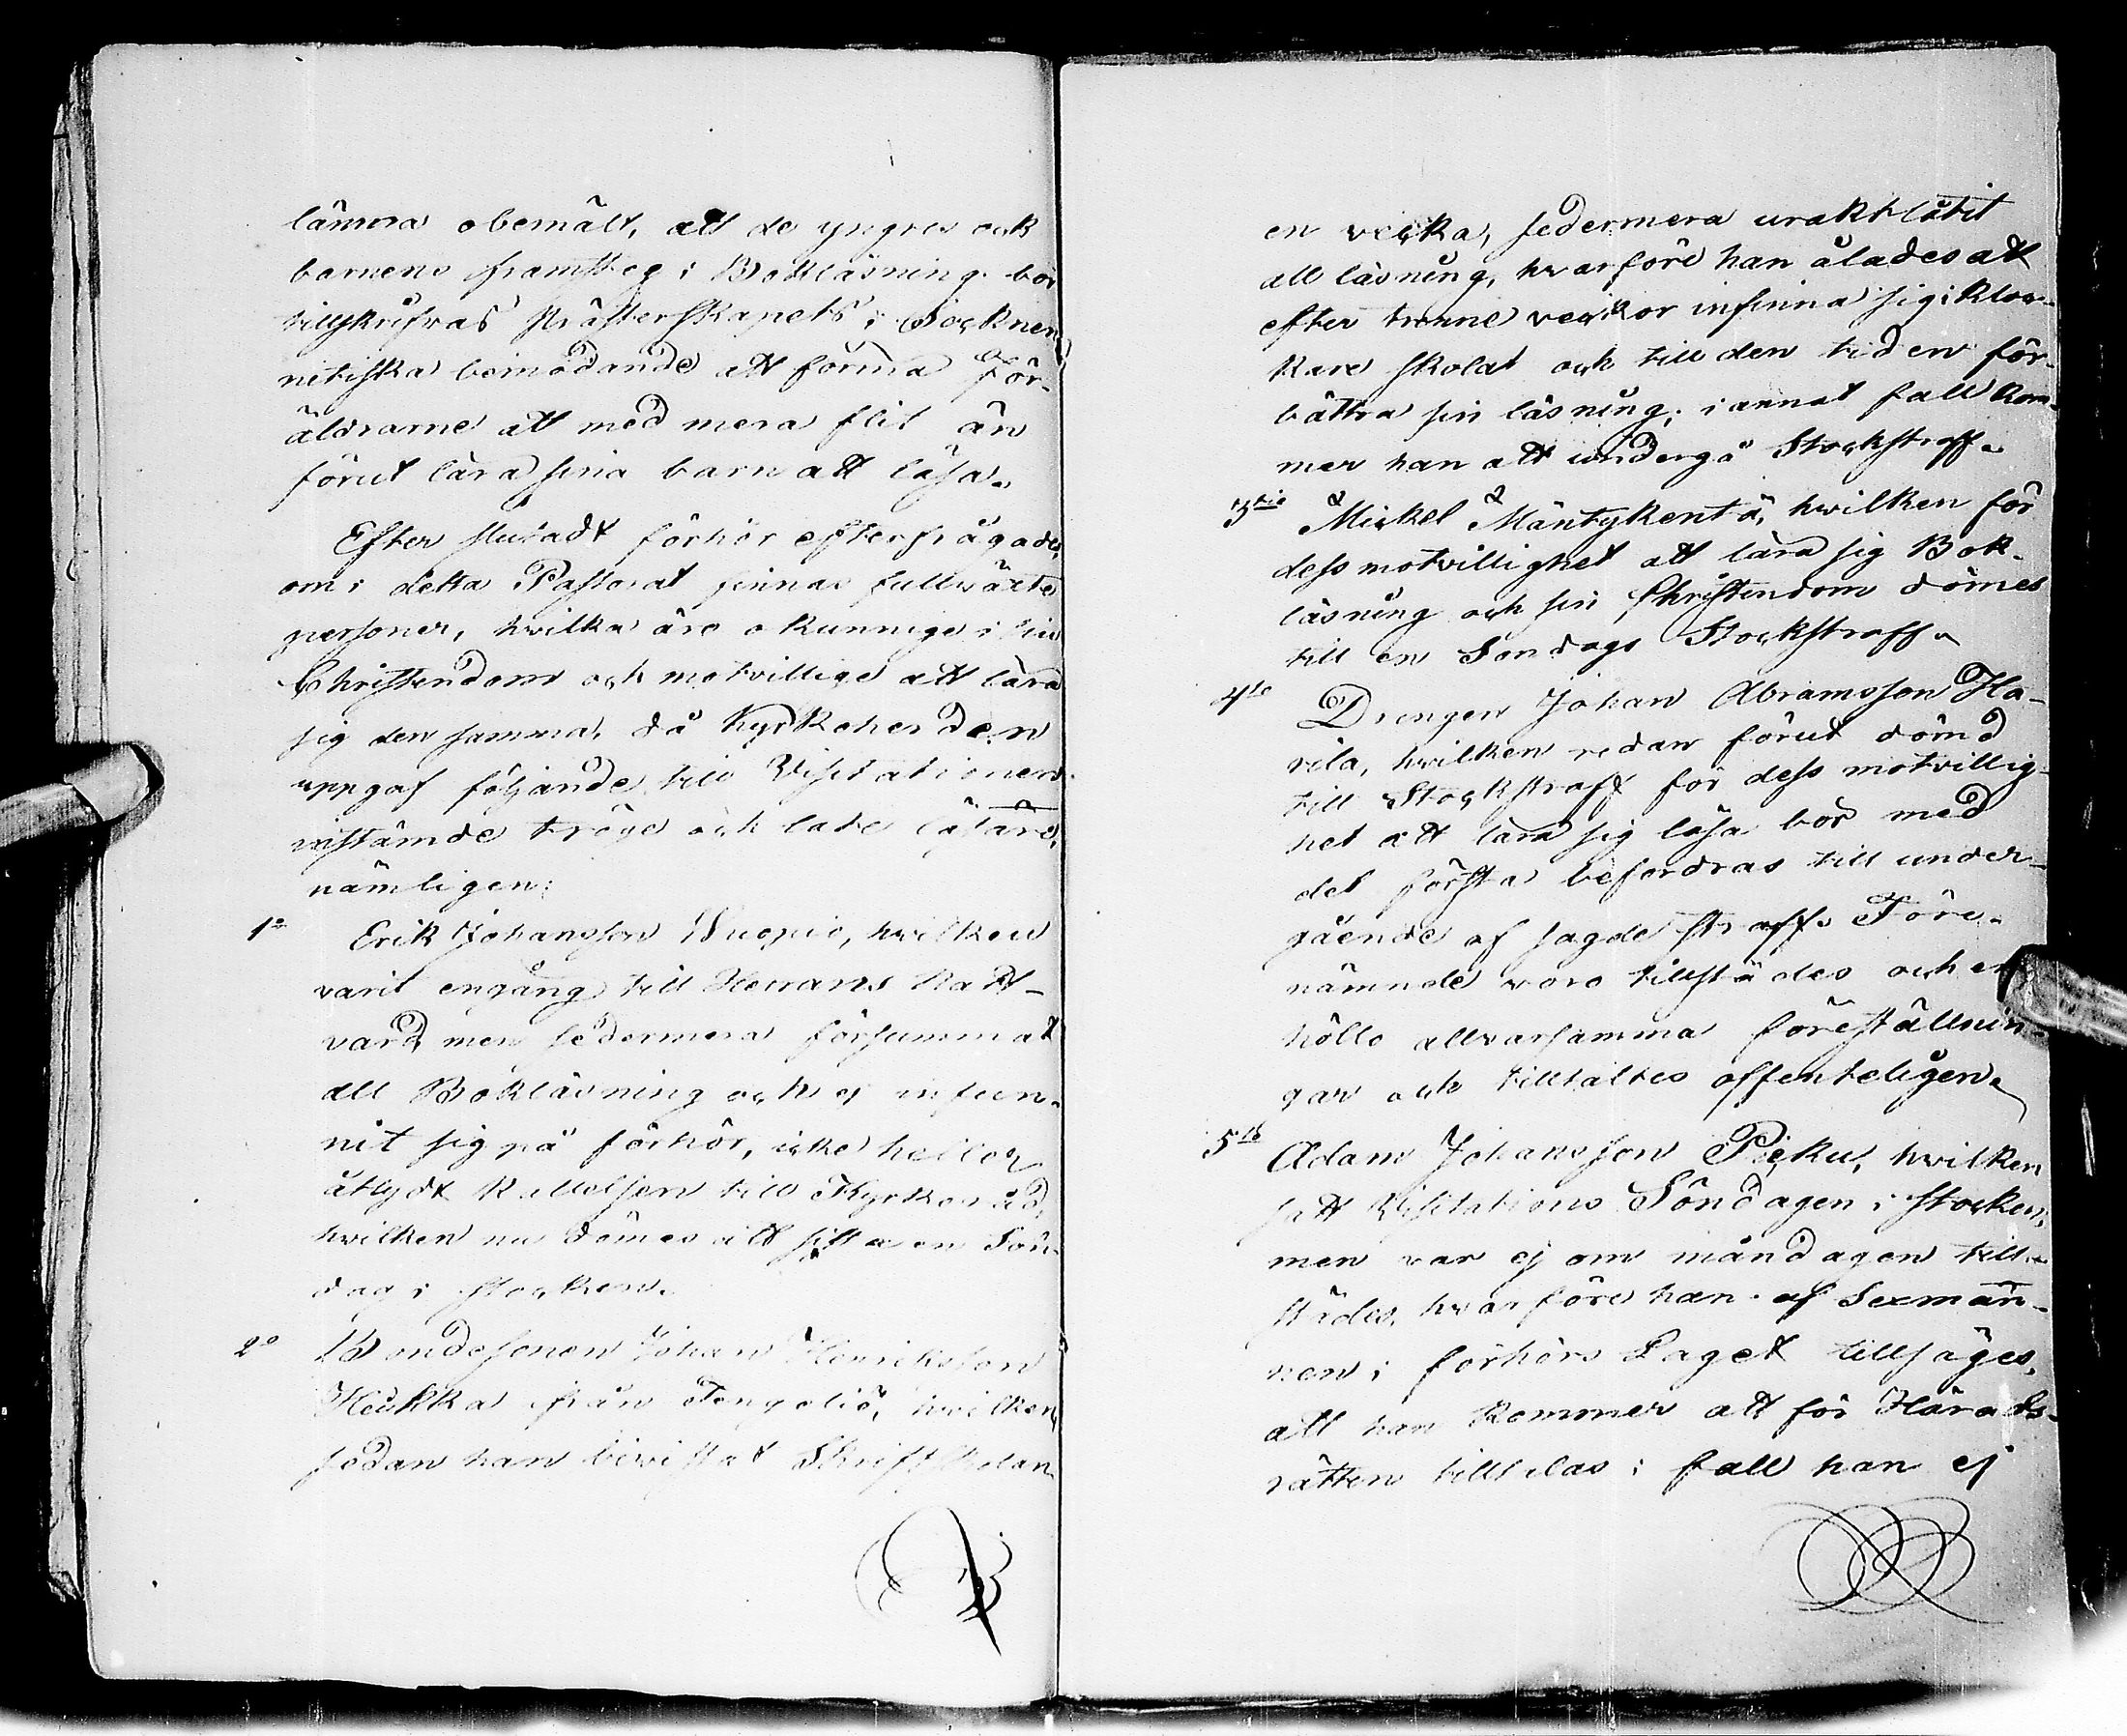 lämna obemält, att de yngres och
barnens framsteg i Bokläsning bör
tillskrifvas Prästerskapets i Socknen
nitiska bemödande att förmå För-
äldrarne att med mera flit än
förut lära sina barn att läsa.
Efter slutadt förhör efterfrågades,
om i detta Pastorat finnas fullväxte
personer, hvilka äro okunnige i sin
Christendom och motvillige att lära
sig den samma, då Kyrkoherden
uppgaf följande till Visitationen
instämde tröge och late läsare,
nämligen:
1o Erik Johansson Vuopio, hvilken
varit engång till Herrans Natt-
vard, men sedermera försummat
all Bokläsning och ej infun-
nit sig på förhör, icke heller
åtlydt kallelsen till Kyrkoråd,
hvilken nu dömes att sitta en Sön-
dag i stocken.
2o Bondesonen Johan Henriksson
Heikka från Tengeliö, hvilken,
sedan han bevistat Skriftskolan
en vecka, sedermera uraktlåtit
all läsning, hvarföre han ålades att
efter trenne veckor infinna sig i Kloc-
kare skolat och till den tiden för-
bättra sin läsning; i annat fall kom-
mer han att undergå Stockstraff.
3tio Mickel Mäntykentä, hvilken för
dess motvillighet att lära sig Bok-
läsning och sin Christendom dömes
till en Söndags Stockstraff.
4to Drengen Johan Abramsson Ha-
vila, hvilken redan förut dömd
till Stockstraff för dess motvillig-
het att lära sig läsa bör med
det första befordras till under-
gående af sagde straff. Före-
nämnde voro tillstädes och er-
höllo allvarsamma föreställnin-
gar och tilltaltes offenteligen.
5to Adam Johansson Piecku, hvilken
satt Visitations Söndagen i stocken,
men var ej om måndagen till-
städes, hvarföre han af Sexmän-
nen i förhörs Laget tillsäges,
att han kommer att för Härads-
rätten tilltalas i fall han ej